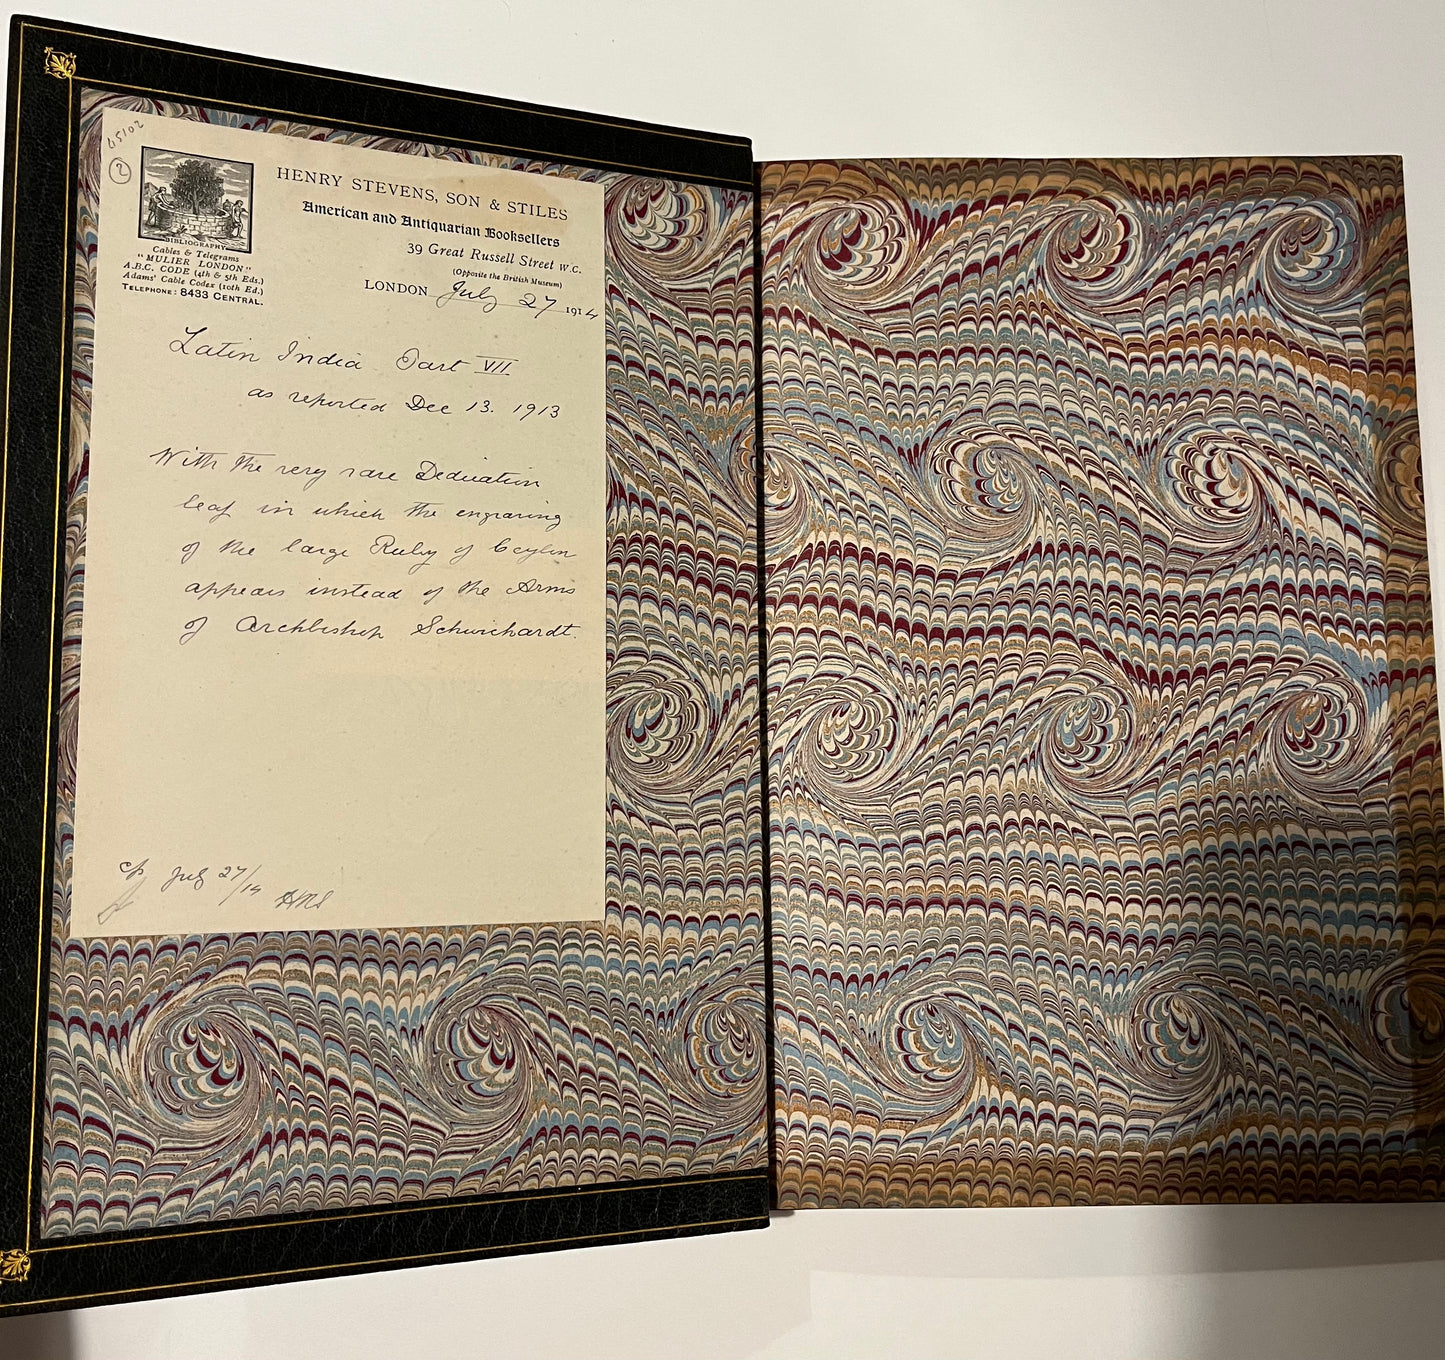 45102
2
BIBLIOGRAPHY
Cables & Telegrams
"MULIER LONDON"
A.B.C. CODE (4th & 5th Eds.)
Adams' Cable Codex (10th Ed.)
TELEPHONE: 8433 CENTRAL.
HENRY STEVENS, SON & STILES
American and Antiquarian Booksellers
39 Great Russell Street W.C.
(Opposite the British Museum)
LONDON July 27 1914
Latin India Part VII
as reported Dec 13. 1913
With the very rare Dedication
leaf in which the engraving
of the large Ruby of Ceylon
appears instead of the Arms
of Archbishop Schwichardt.
July 27/14